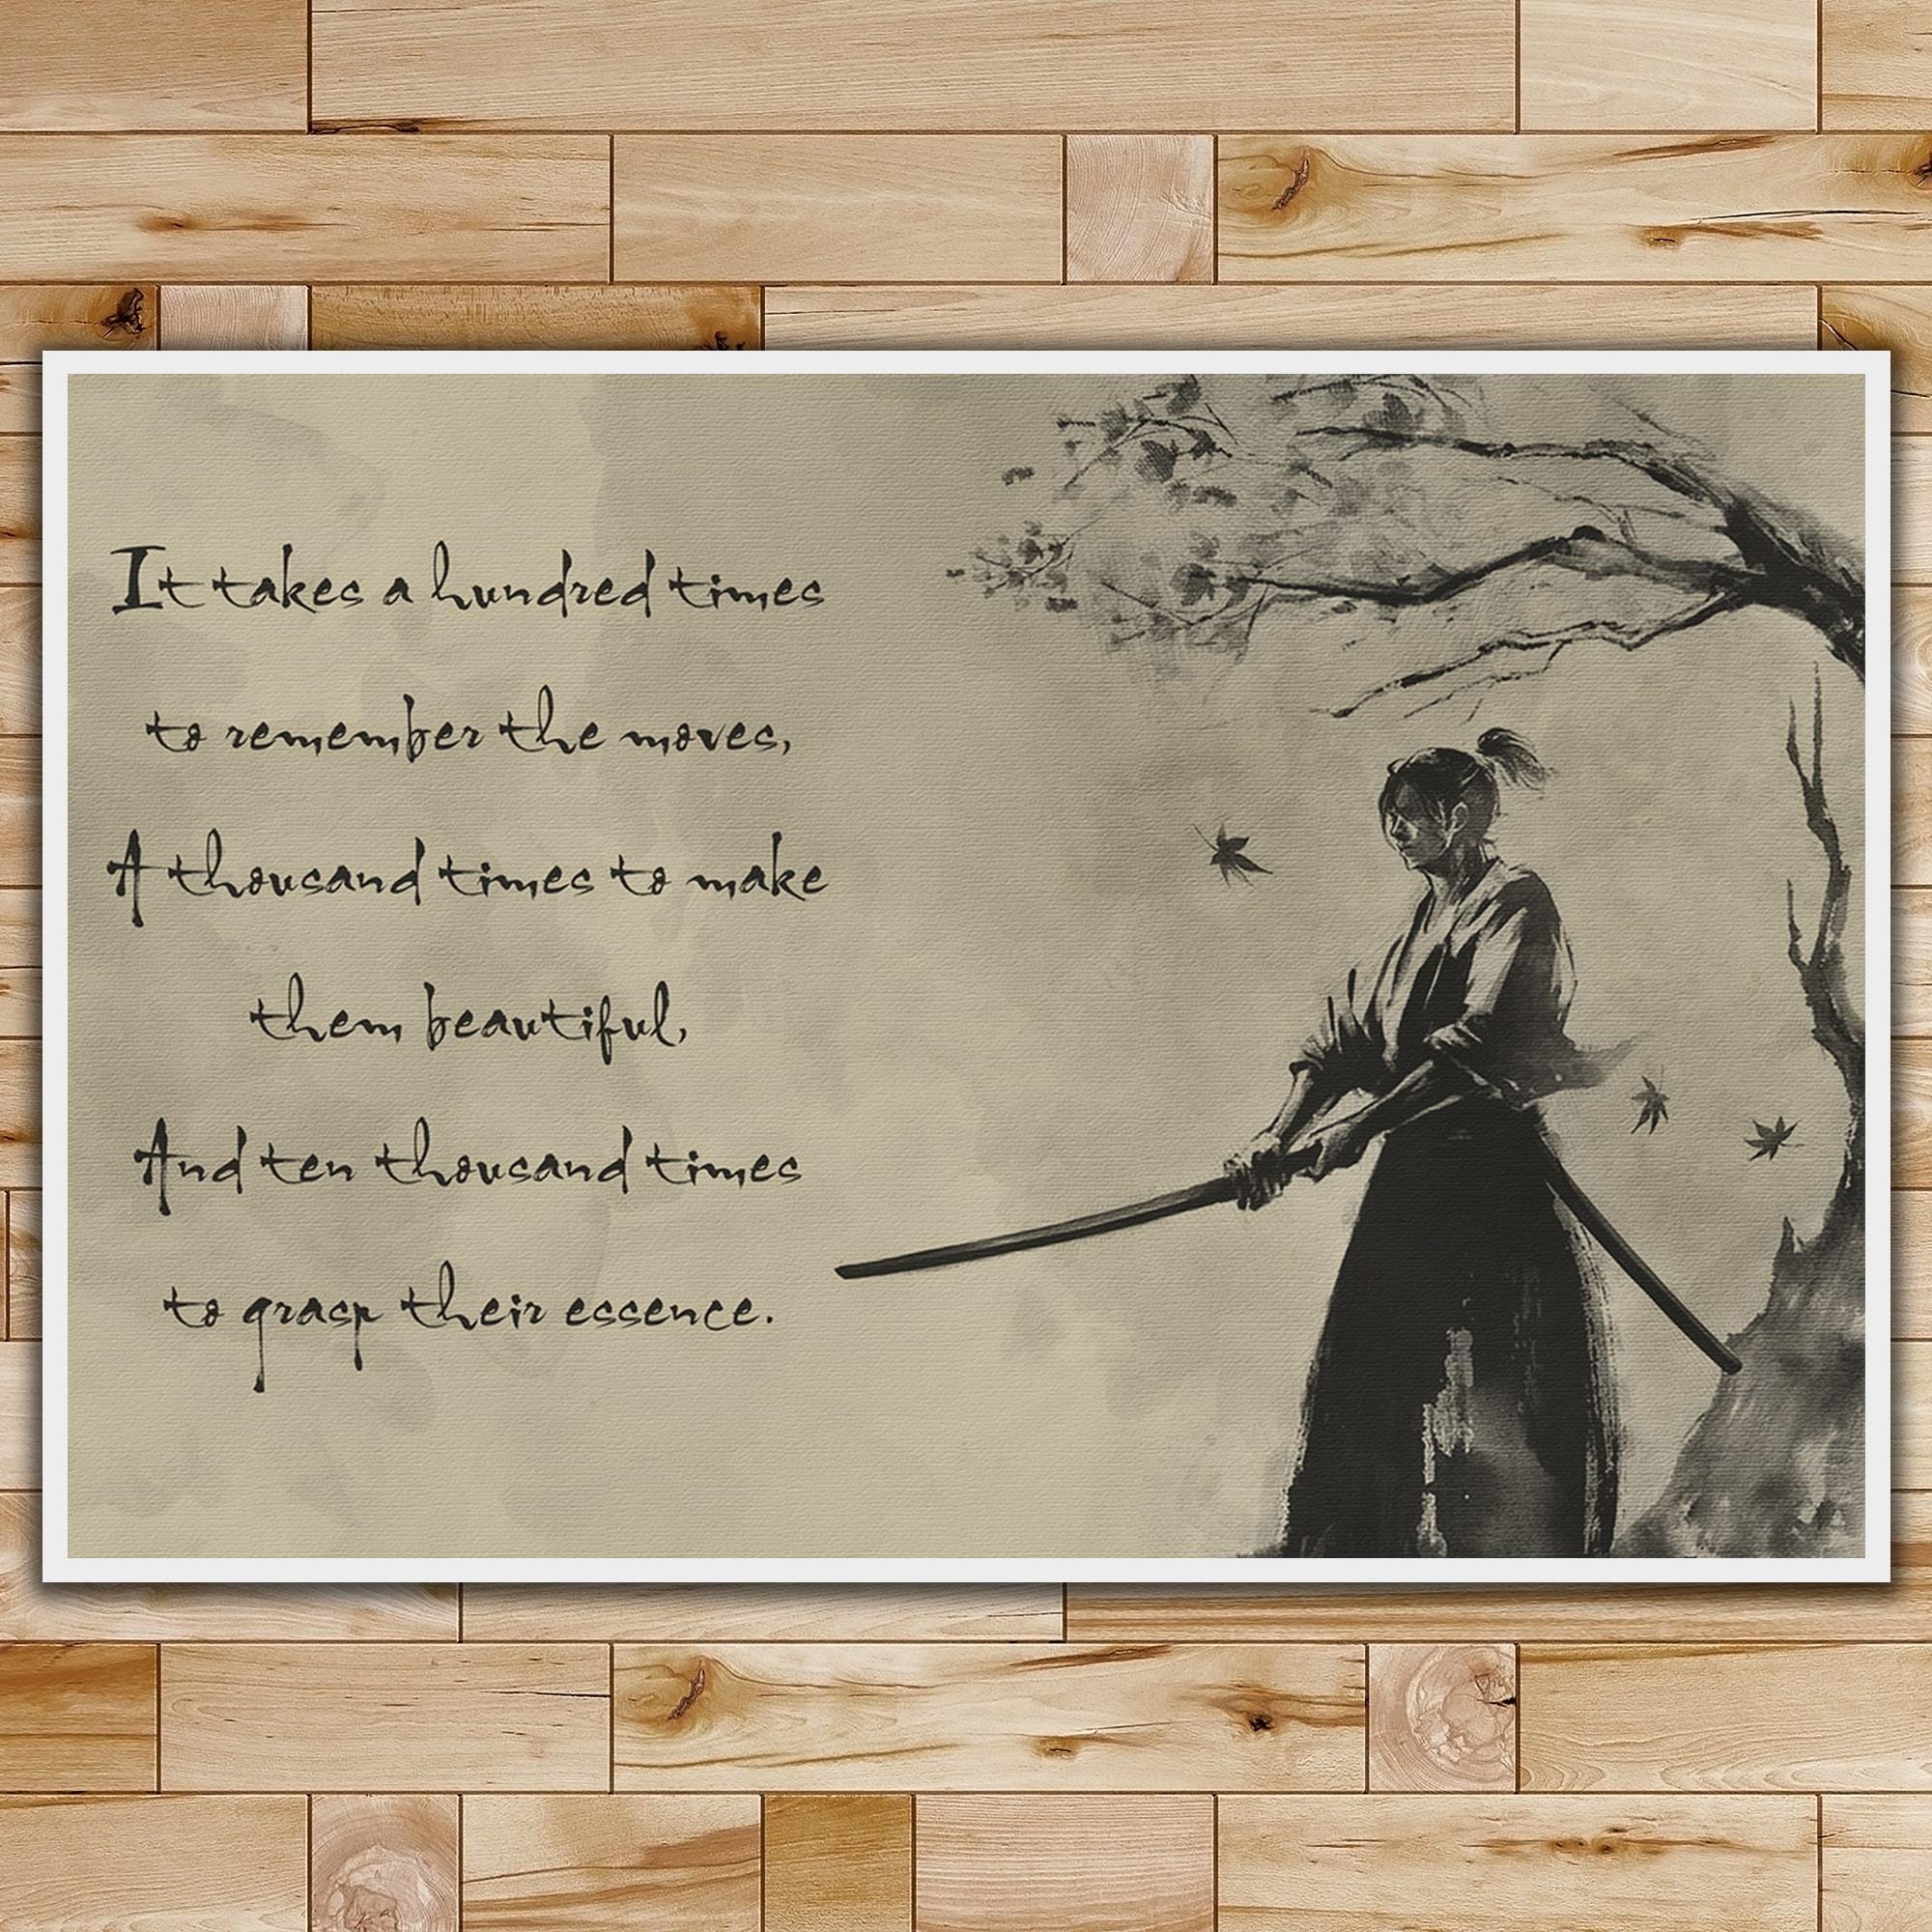 It takes a hundred times
to remember the moves,
A thousand times to make
them beautiful,
And ten thousand times
to grasp their essence.